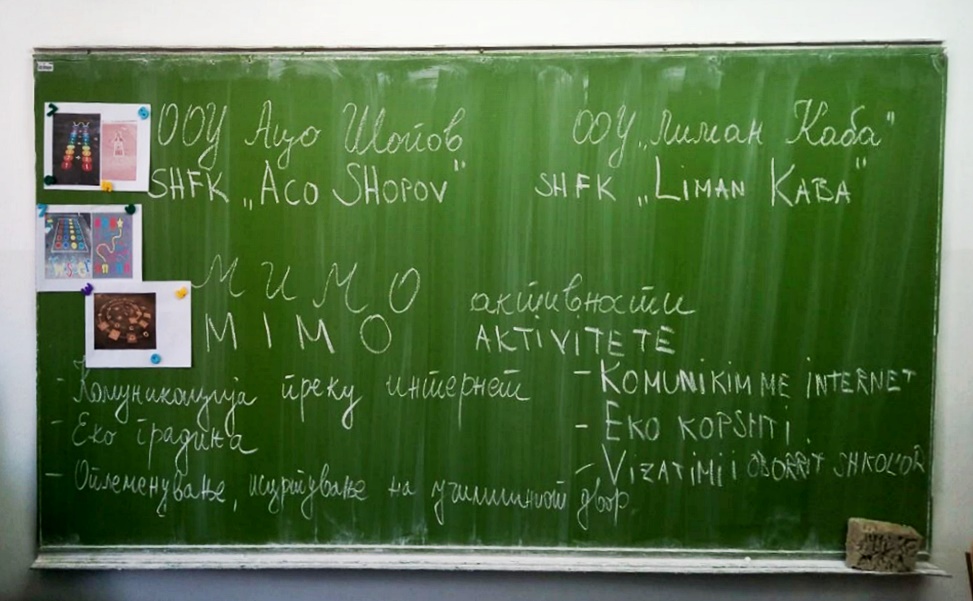 ООУ Ацо Шопов
ООУ „Лиман Каба"
SHFK „ACO SHOPOV"
SHFK „LIMAN KABA"
МИМО активности
MIMO AKTIVITETE
- Комуникација преку интернет
- KOMUNIKIM ME INTERNET
- Еко градина
- EKO KOPSHTI
- Оплеменување, исцртување на училишниот двор
- VIZATIMI I OBORRIT SHKOLOR